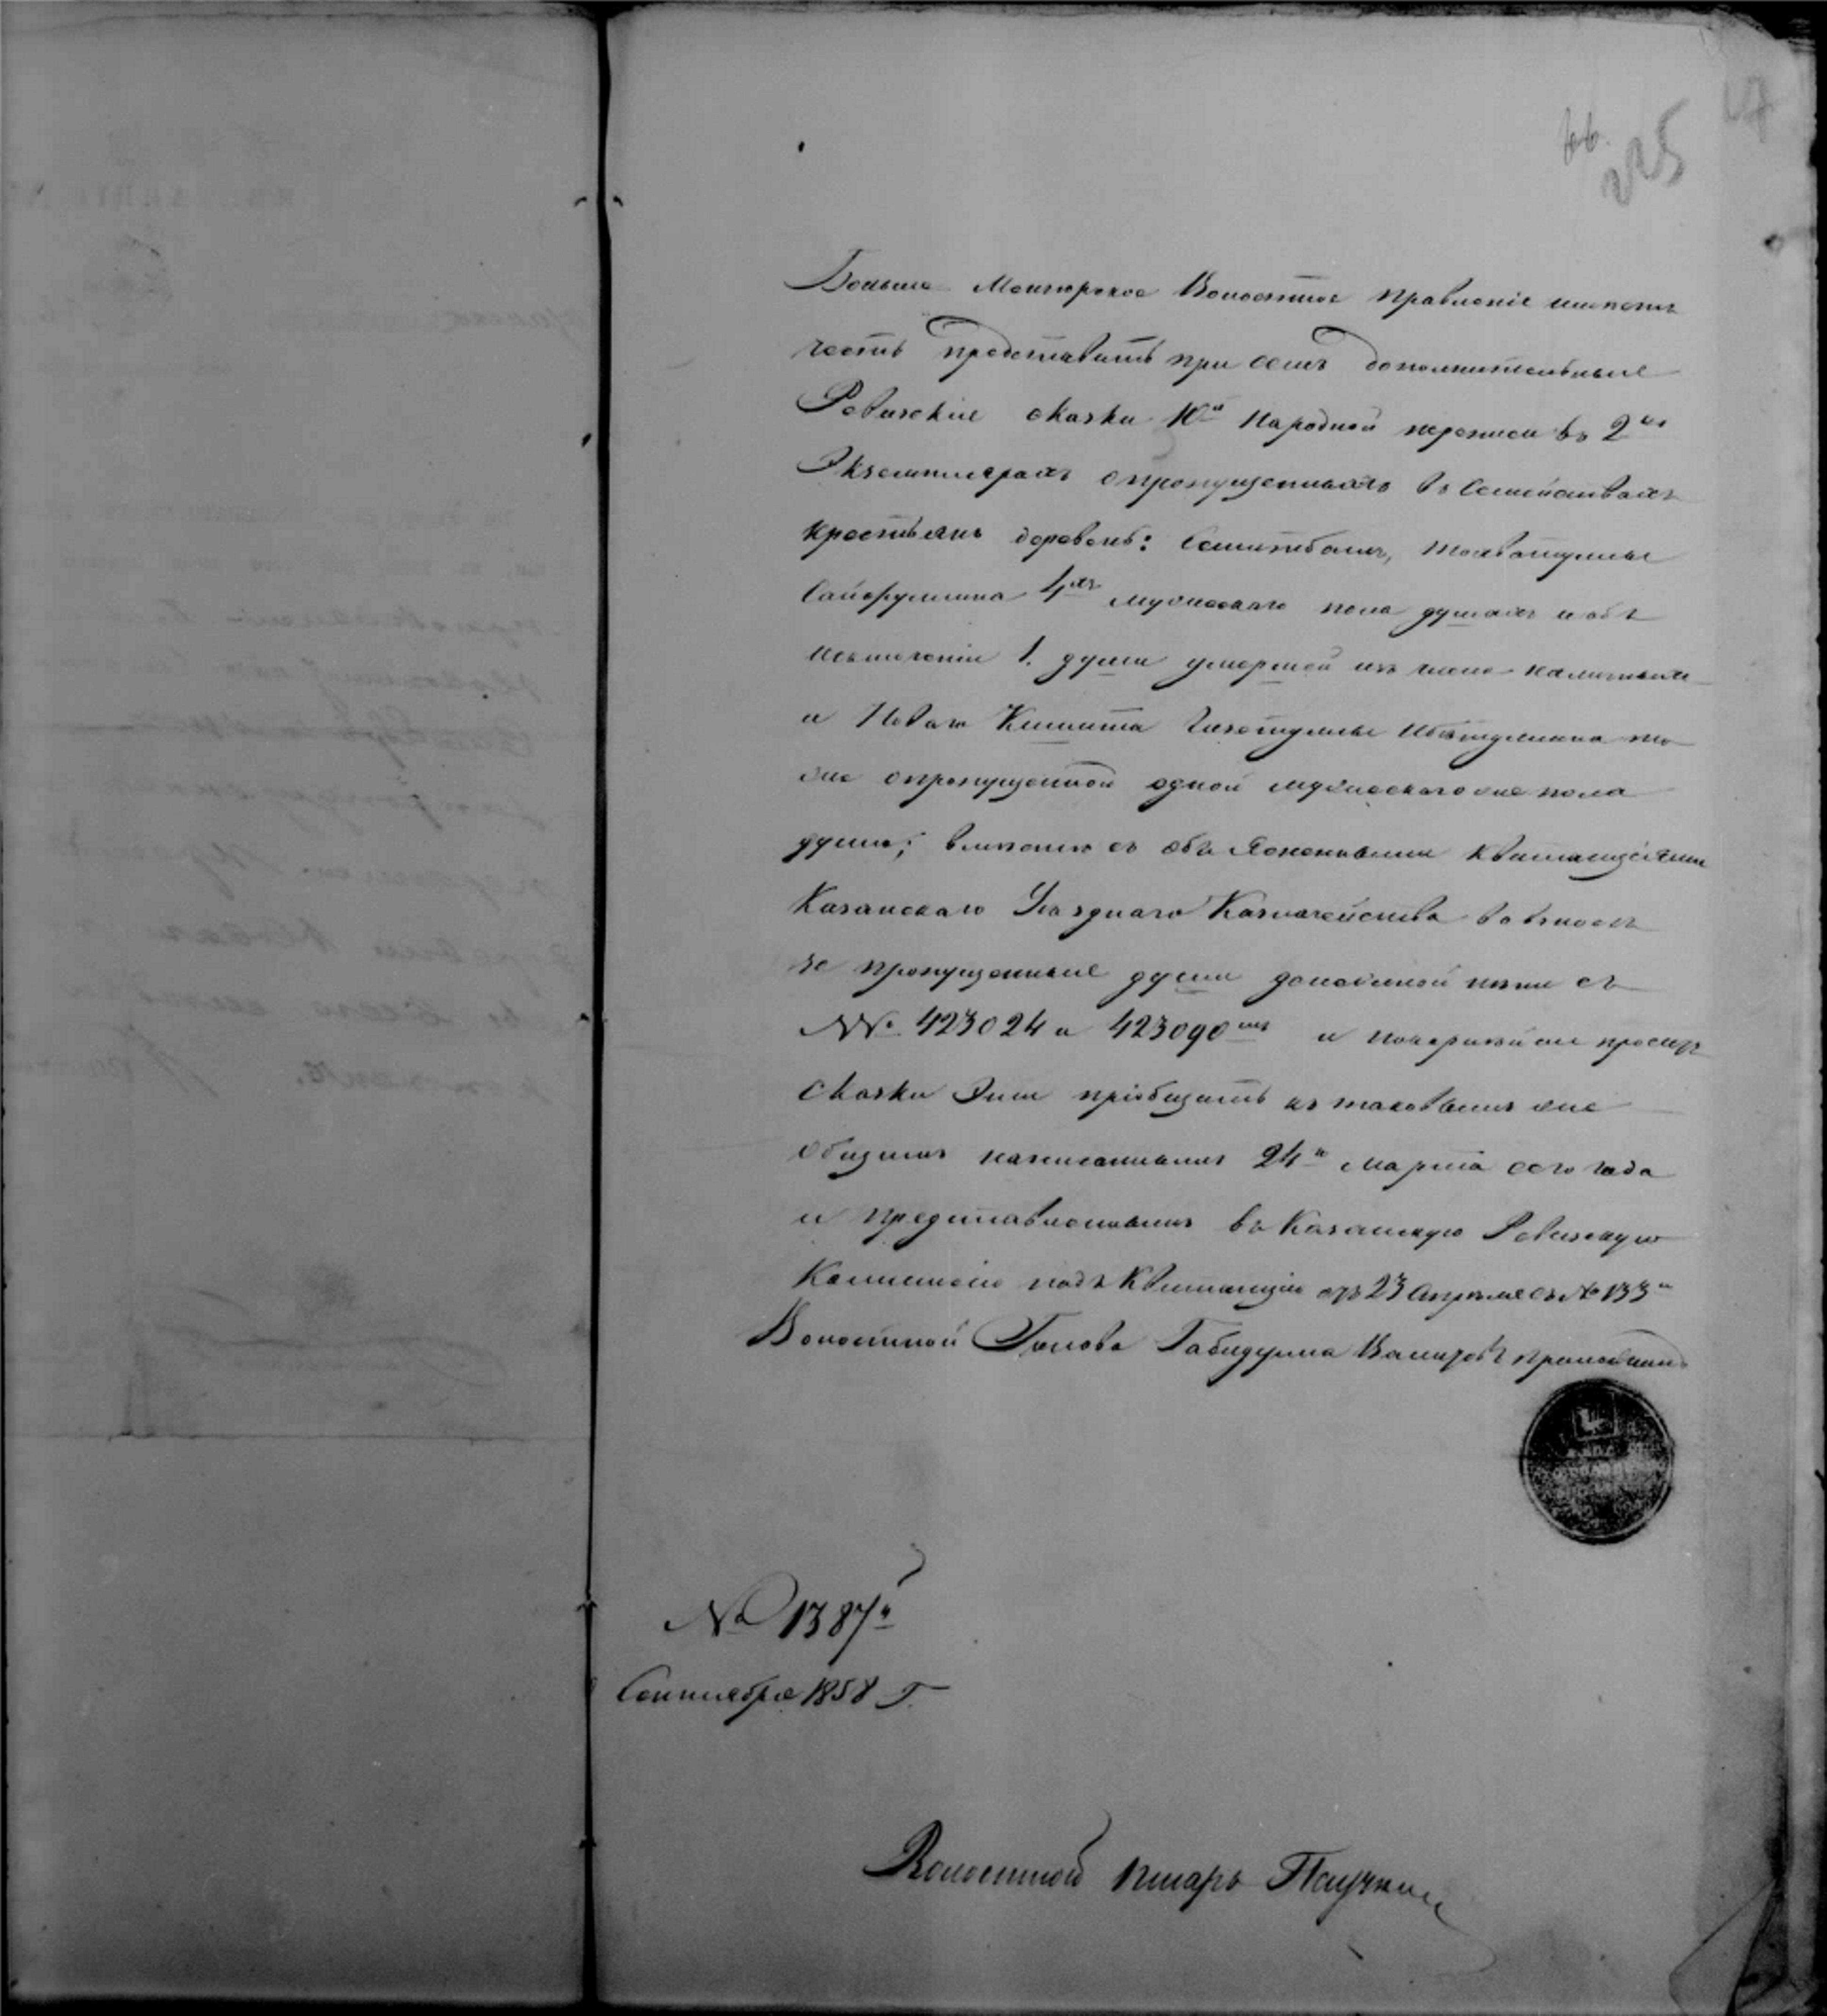 225
Больше Менгерское Волостное Правленіе имѣетъ
честь представить при семъ дополнительные
Ревизскіе сказки 10й Народной переписи въ 2хъ
Экземплярахъ о пропущенныхъ въ Семействахъ
крестьянъ деревень:
Сайфуллина 4хъ мужескаго пола душахъ и объ
исключеніи 1. души умершей изъ числа наличныхъ
и Новаго Кишита Ибятуллина то
же о пропущенной одной мужескаго же пола
души; вмѣстѣ съ объ явленными квитанціями
Казанскаго Уѣзднаго Казначейства во взносѣ
за пропущенные души денежной пени съ
№№ 423024 и 423090мъ и покорнѣйше проситъ
сказки эти пріобщить къ таковымъ же
общимъ написаннымъ 24го Марта сего года
и представленнымъ въ Казанскую Ревизскую
Коммисію подъ Квитанцію отъ 23 Апрѣля съ № 133м
Волостной Голова Габидулла Вагизовъ приложилъ
№ 1387й
Сентября 1858 Г.
Волостной писарь